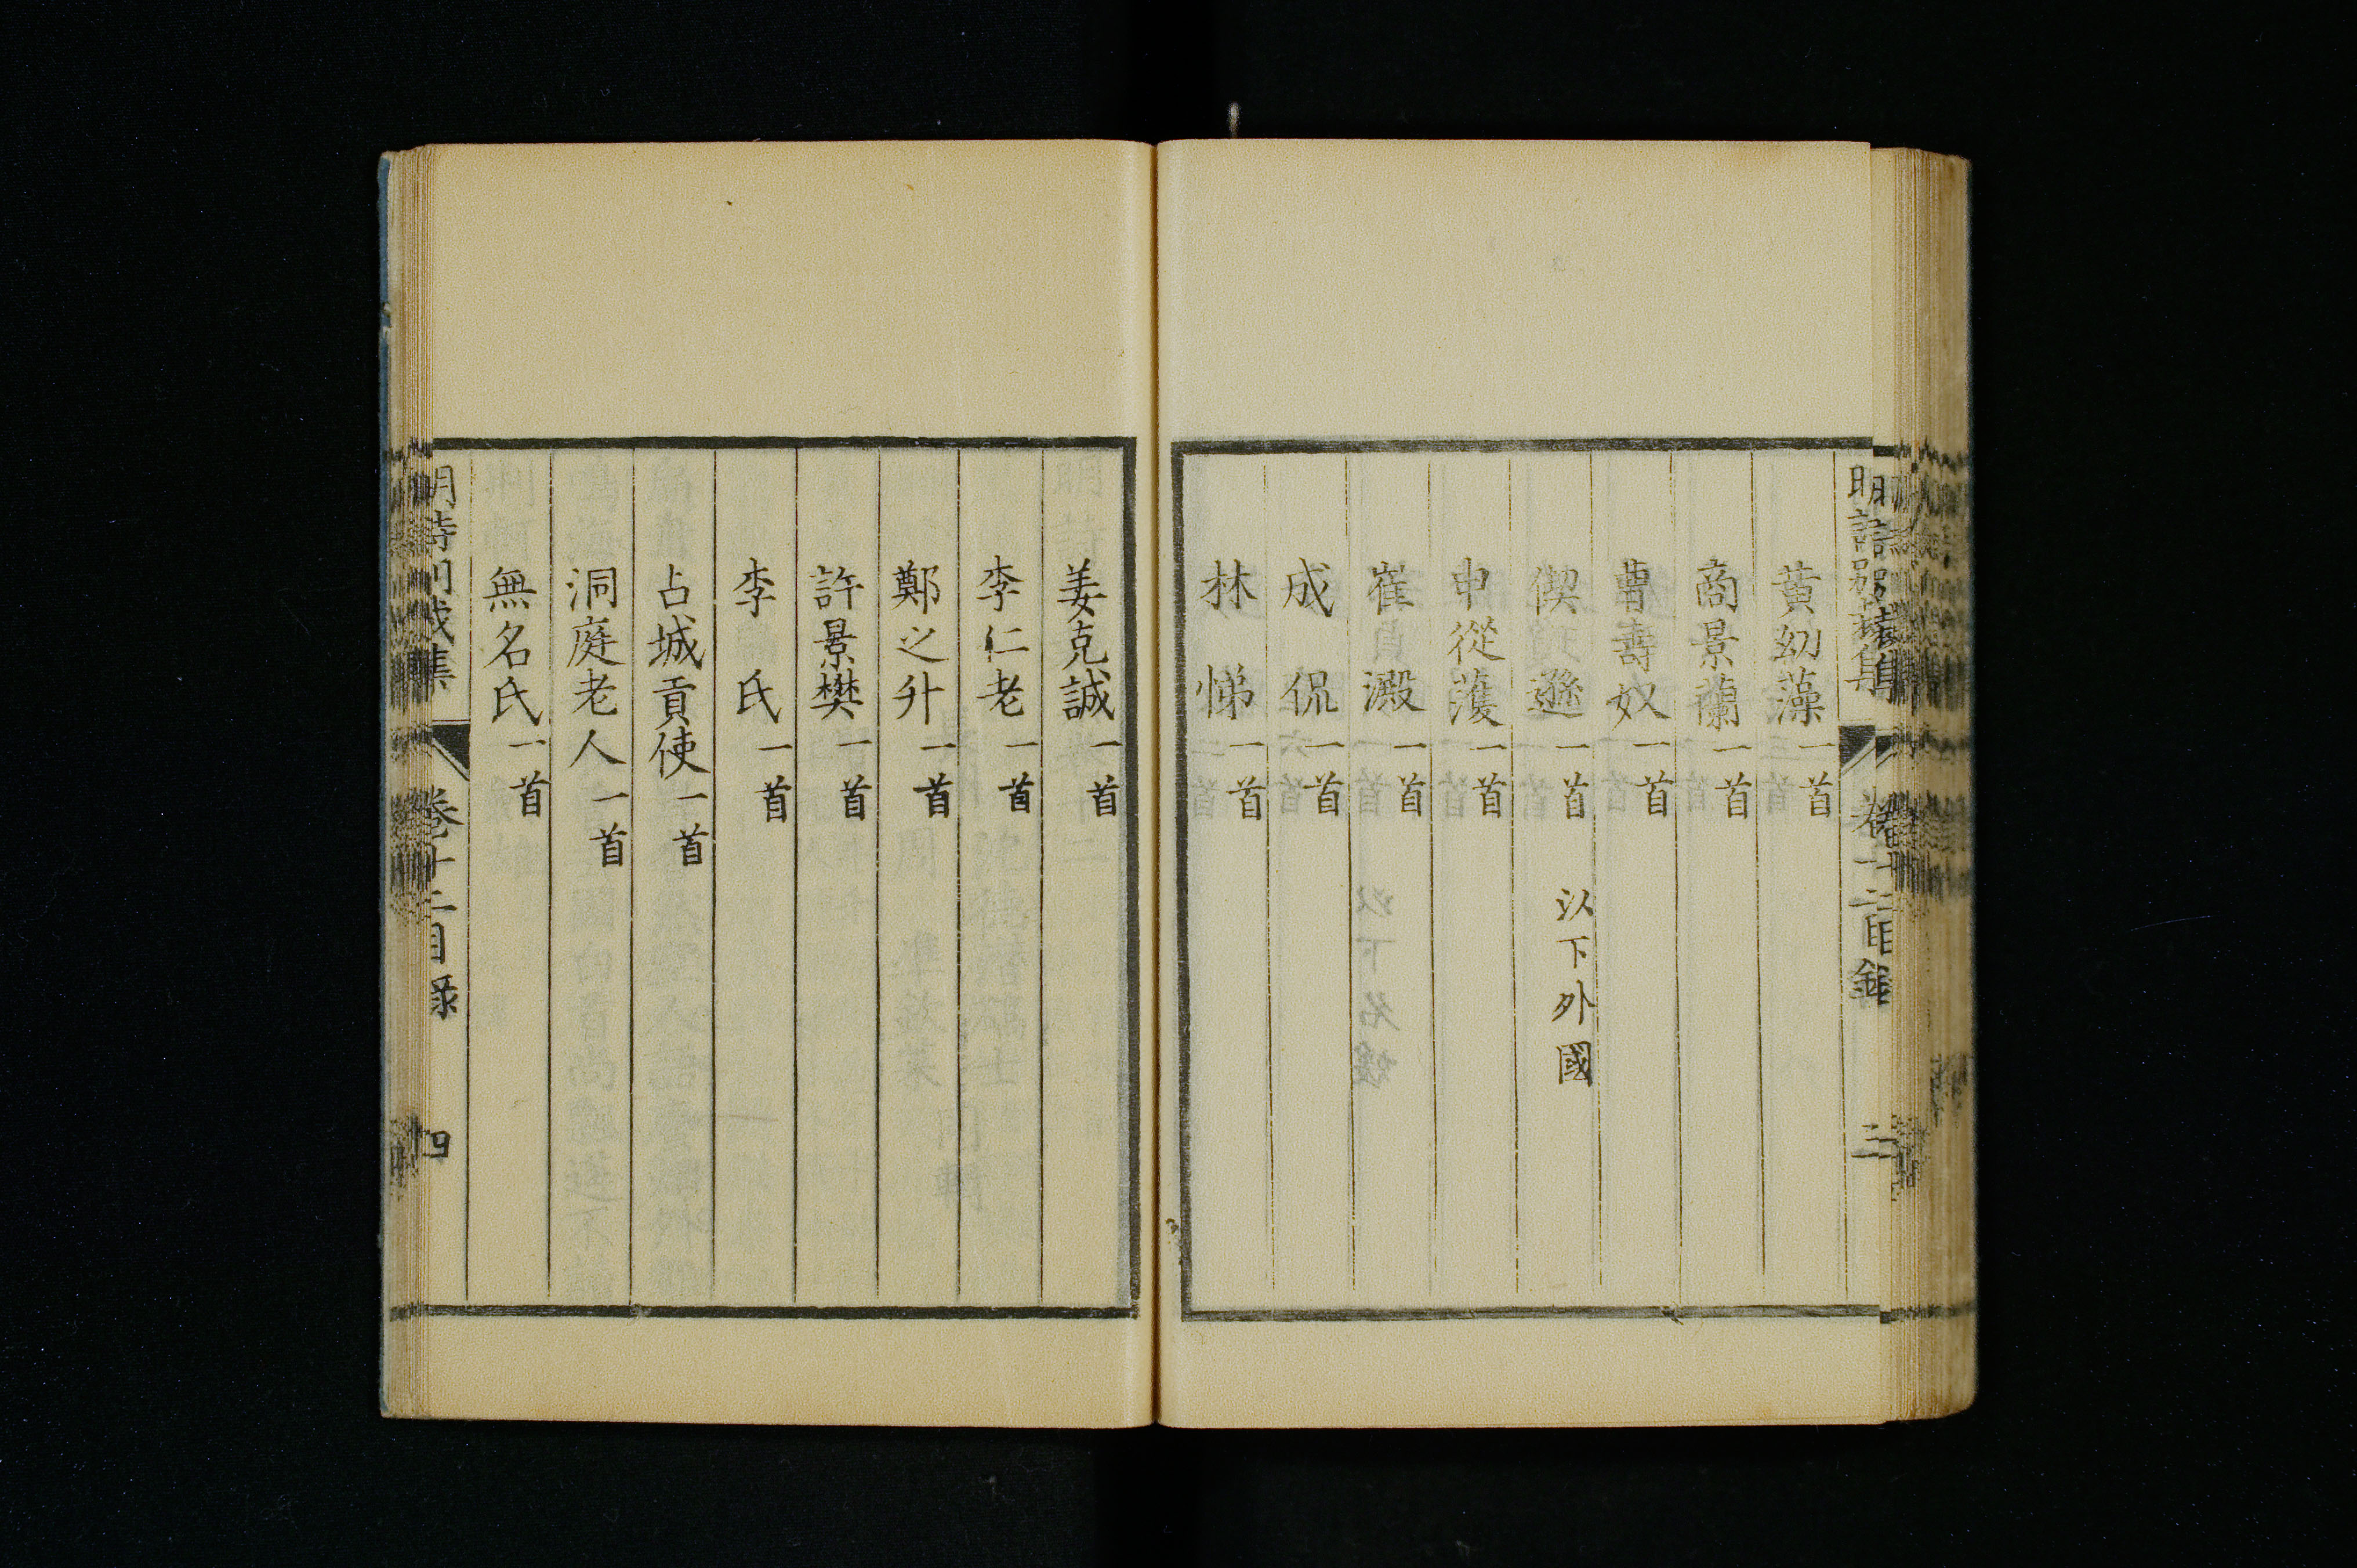 黃幼藻一首
商景蘭一首
曹壽奴一首
偰遜一首 以下外國
申從濩一首
崔澱一首
成侃一首
林悌一首
姜克誠一首
李仁老一首
鄭之升一首
許景樊一首
李氏一首
占城貢使一首
洞庭老人一首
無名氏一首
明詩別裁集 卷十二目錄 四